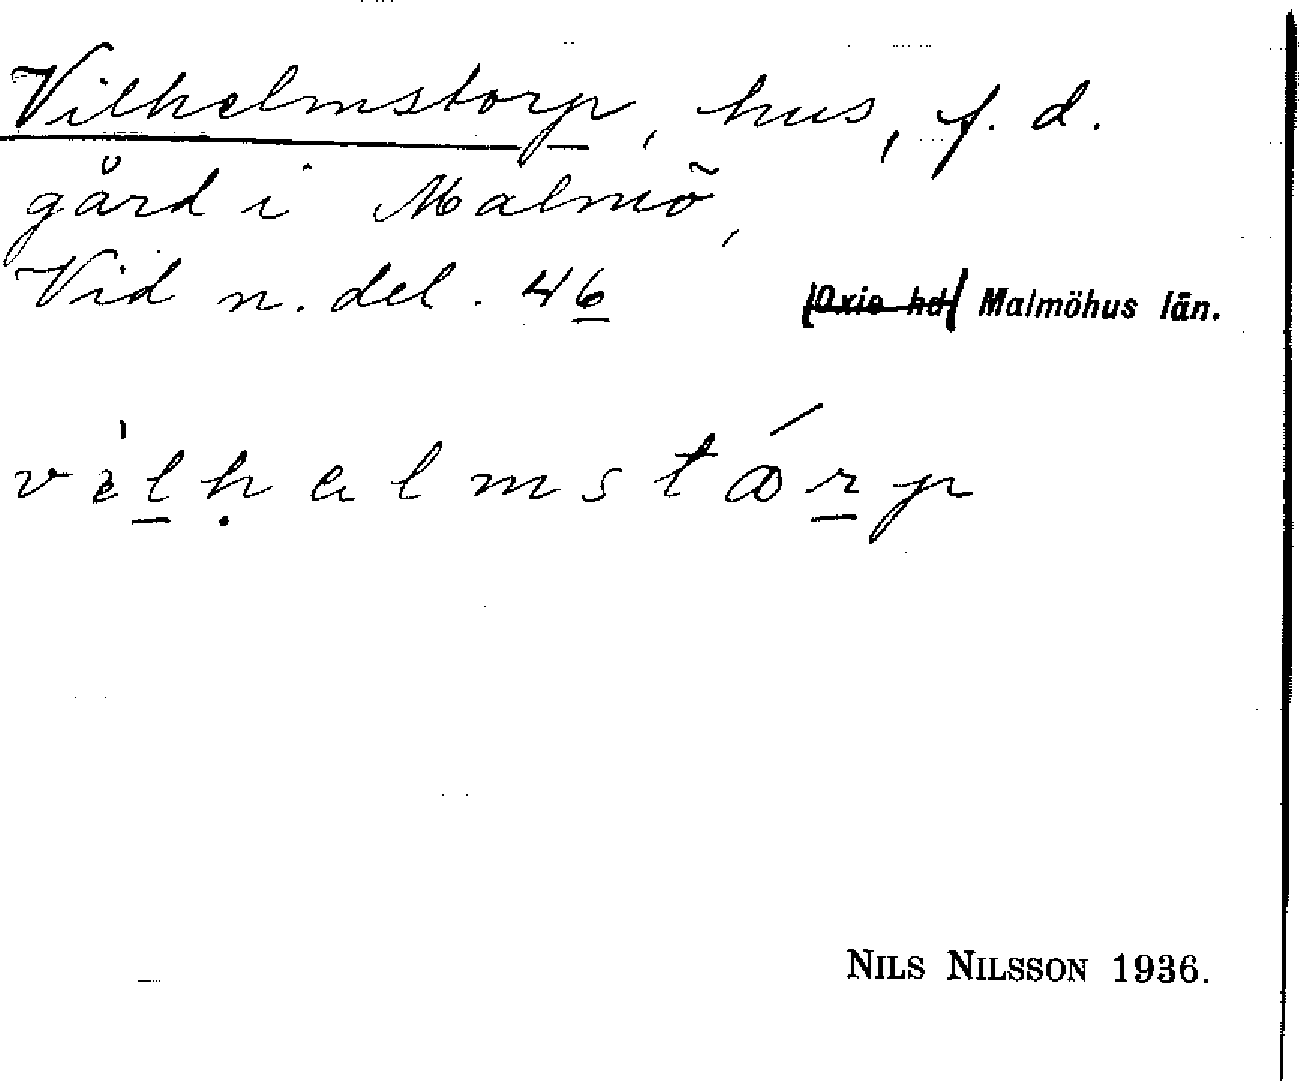 Vilhelmstorp, hus, f. d.
gård i Malmö,
Vid n. del. 46
(Oxie hd) Malmöhus län.
NILS NILSSON 1936.